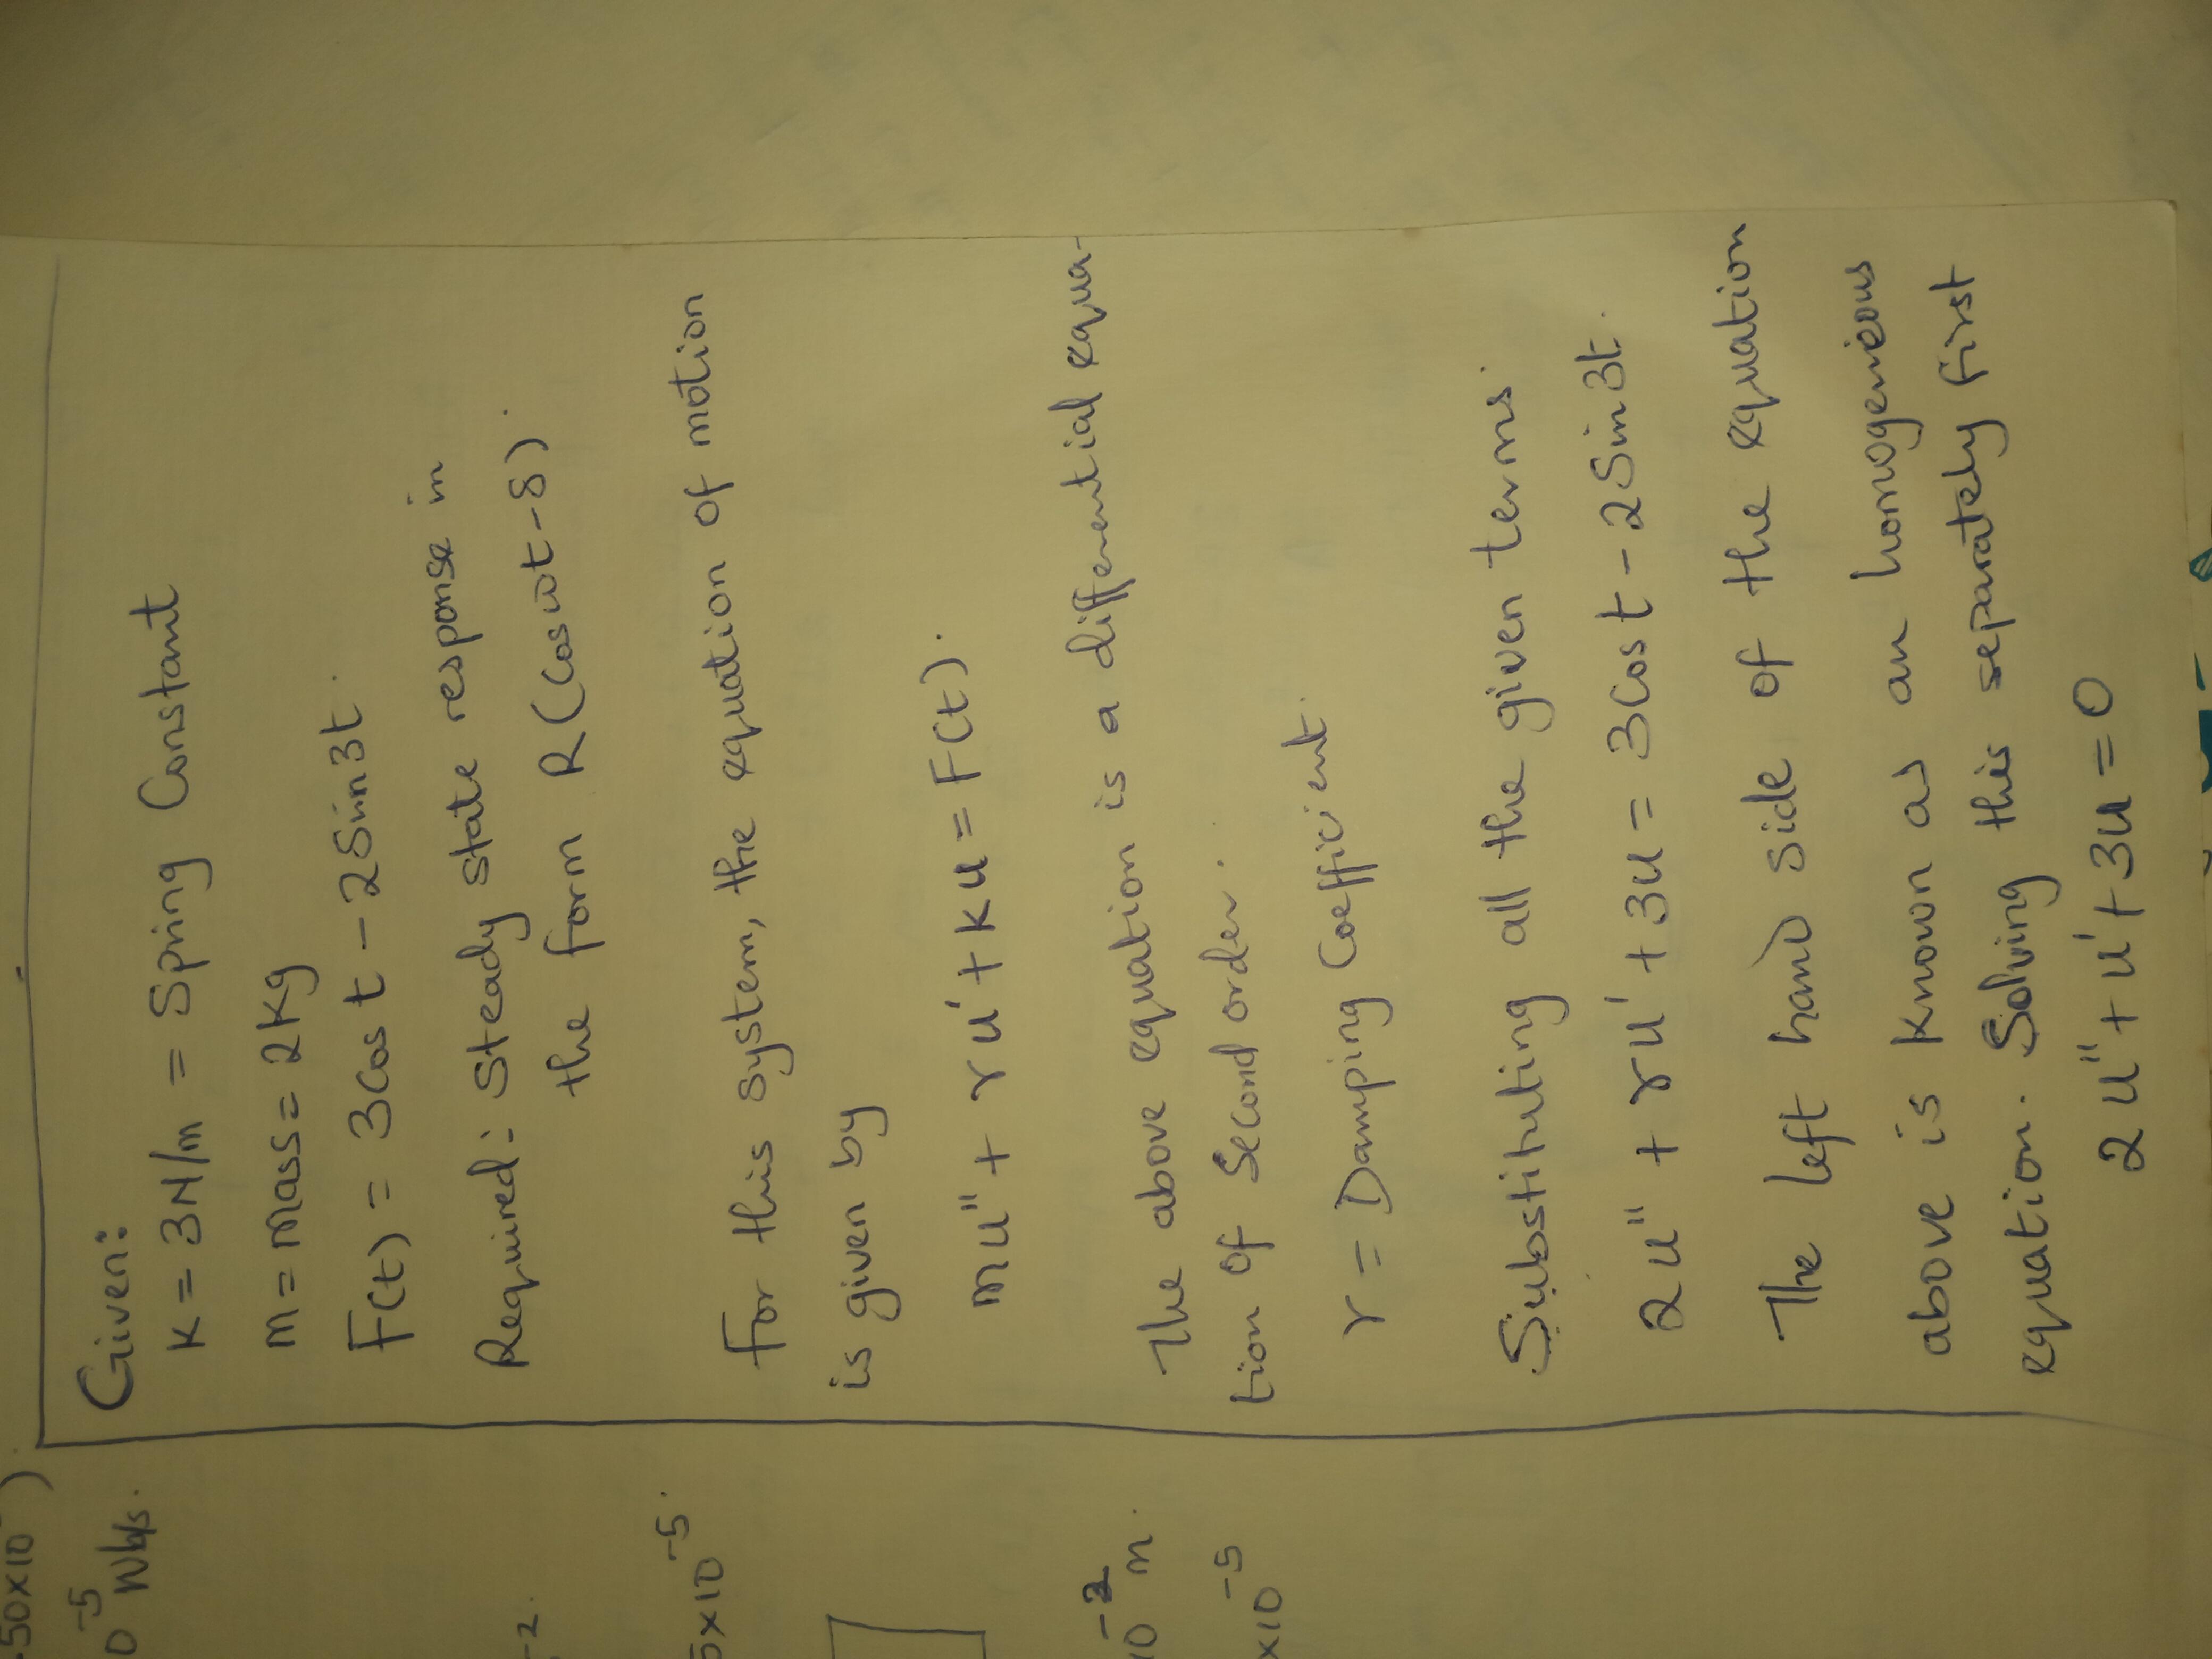 Given:
K = 3N/m = Spring Constant
m = mass = 2Kg
F(t) = 3Cos t - 2Sin3t.
Required: Steady state response in
the form R(Cosωt-δ).
For this system, the equation of motion
is given by
mu" + ru' + Ku = F(t).
The above equation is a differential equa-
tion of Second order.
r = Damping Coefficient.
Substituting all the given terms.
2u" + ru' + 3u = 3Cos t - 2Sin3t.
The left hand side of the equation
above is known as an homogenieous
equation. Solving this separately first
2u" + u' + 3u = 0
50x10
)
0⁻⁵ Wb/s.
-2.
5x10⁻⁵.
10⁻² m.
x10⁻⁵